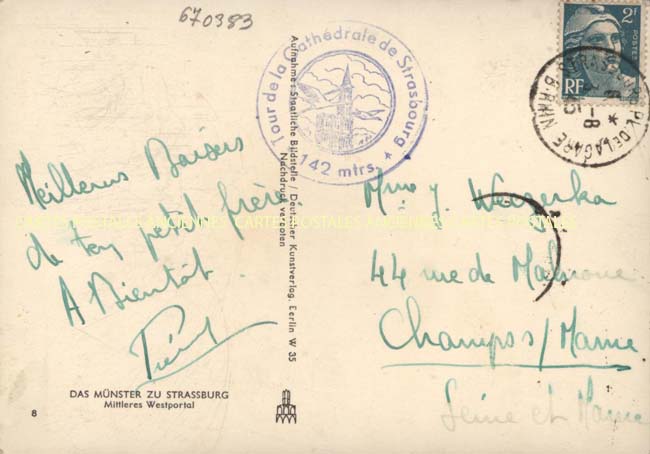 670383
Tour de la Cathédrale de Strasbourg
142 mtrs.
2F
POSTES
RF
STRASBOURG PL. DE LA GARE
B. RHIN
-8
Meilleurs Baisers
de ton petit frère
A Bientôt
Aufnahme: Staatliche Bildstelle / Deutscher Kunstverlag, Berlin W 35
Nachdruck verboten
Mme J.
44 rue de
Champs s/ Marne
Seine et Marne
CARTES POSTALES ANCIENNES CARTES POSTALES ANCIENNES CARTES POSTALES
DAS MÜNSTER ZU STRASSBURG
Mittleres Westportal
8